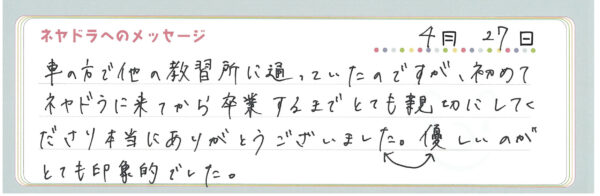 ネヤドラへのメッセージ
4月 27日
車の方で他の教習所に通っていたのですが、初めて
ネヤドラに来てから卒業するまでとても親切にしてく
ださり本当にありがとうございました。優しいのが
とても印象的でした。